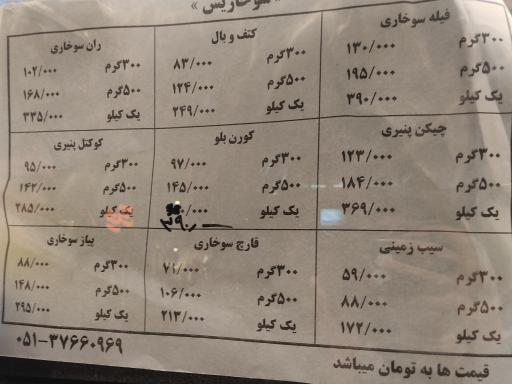 « سوخاریس »
فیله سوخاری
۳۰۰گرم ۱۳۰/۰۰۰
۵۰۰گرم ۱۹۵/۰۰۰
یک کیلو ۳۹۰/۰۰۰
کتف و بال
۳۰۰گرم ۸۳/۰۰۰
۵۰۰گرم ۱۲۴/۰۰۰
یک کیلو ۲۴۹/۰۰۰
ران سوخاری
۳۰۰گرم ۱۰۲/۰۰۰
۵۰۰گرم ۱۶۸/۰۰۰
یک کیلو ۳۳۵/۰۰۰
چیکن پنیری
۳۰۰گرم ۱۲۳/۰۰۰
۵۰۰گرم ۱۸۴/۰۰۰
یک کیلو ۳۶۹/۰۰۰
کورن بلو
۳۰۰گرم ۹۷/۰۰۰
۵۰۰گرم ۱۴۵/۰۰۰
یک کیلو
۲۹۰
کوکتل پنیری
۳۰۰گرم ۹۵/۰۰۰
۵۰۰گرم ۱۴۲/۰۰۰
یک کیلو ۲۸۵/۰۰۰
سیب زمینی
۳۰۰گرم ۵۹/۰۰۰
۵۰۰گرم ۸۸/۰۰۰
یک کیلو ۱۷۲/۰۰۰
قارچ سوخاری
۳۰۰گرم ۷۱/۰۰۰
۵۰۰گرم ۱۰۶/۰۰۰
یک کیلو ۲۱۳/۰۰۰
پیاز سوخاری
۳۰۰گرم ۸۸/۰۰۰
۵۰۰گرم ۱۴۸/۰۰۰
یک کیلو ۲۹۵/۰۰۰
قیمت ها به تومان میباشد
۰۵۱-۳۷۶۶۰۹۶۹